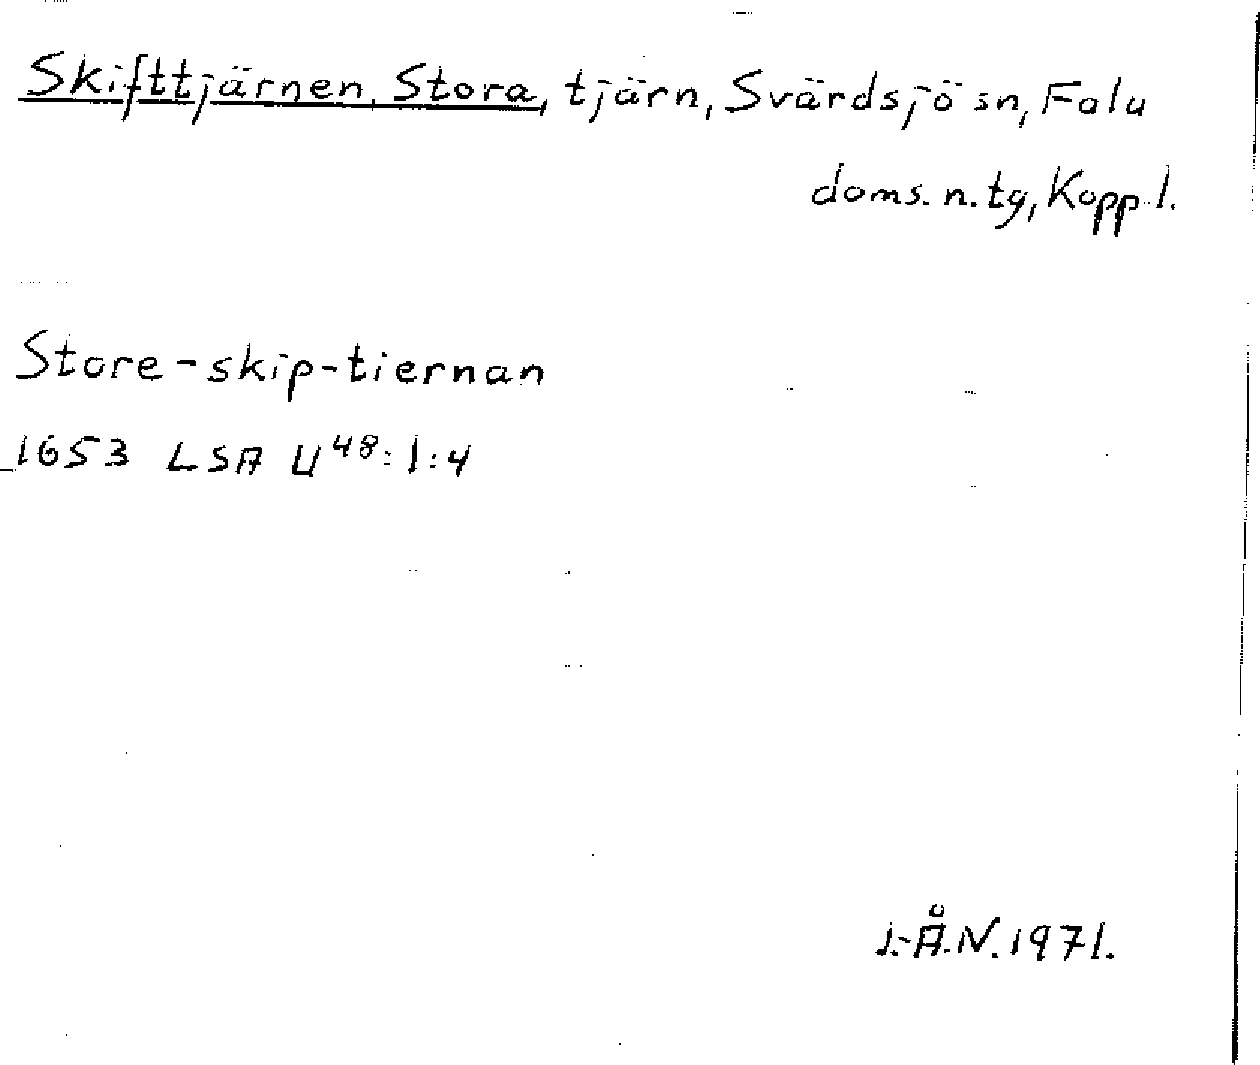 Skifttjärnen, Stora, tjärn, Svärdsjö sn, Falu
doms. n. tg, Kopp. l.
Store-skip-tiernan
1653 LSA U48:1:4
J.-Å.N. 1971.